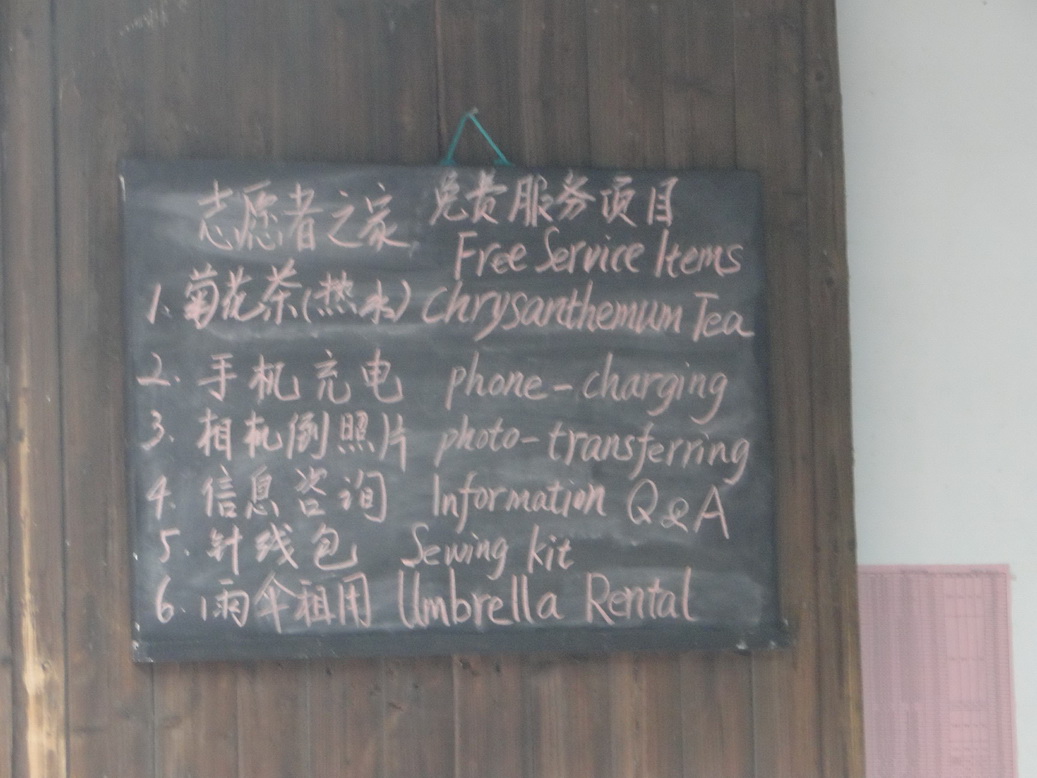 志愿者之家 免费服务项目
Free Service Items
1. 菊花茶(热水) Chrysanthemum Tea
2. 手机充电 phone-charging
3. 相机倒照片 photo-transferring
4. 信息咨询 Information Q&A
5. 针线包 Sewing kit
6. 雨伞租用 Umbrella Rental